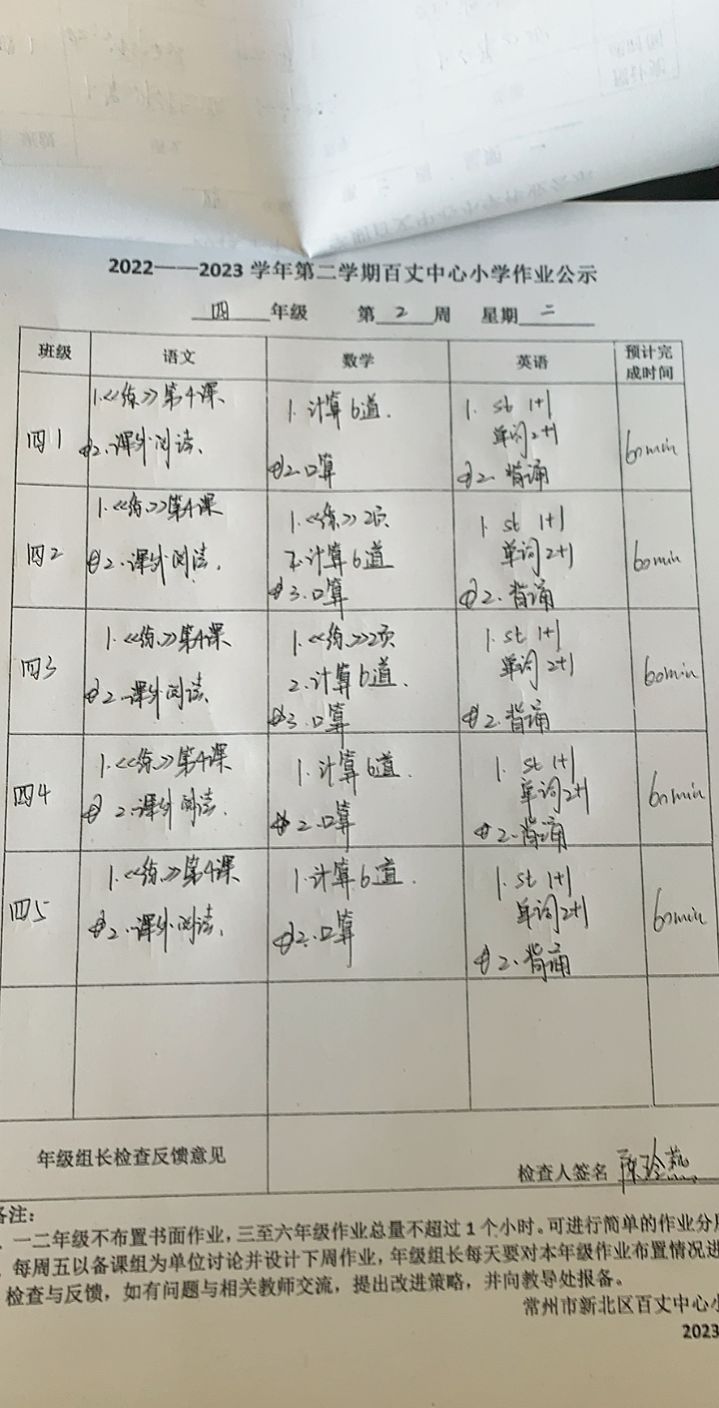 2022——2023 学年第二学期百丈中心小学作业公示
四 年级 第 2 周 星期 二
班级 语文 数学 英语 预计完成时间
四1
1.《练》第4课
②2.课外阅读.
1. 计算6道.
②2.口算
1. st 1+1
单词2+1
②2. 背诵
60min
四2
1.《练》第4课
②2.课外阅读.
1.《练》2页
2.计算6道
②3.口算
1. st 1+1
单词2+1
②2.背诵
60min
四3
1.《练》第4课
②2.课外阅读.
1.《练》2页
2.计算6道.
②3.口算
1. st 1+1
单词2+1
②2.背诵
60min
四4
1.《练》第4课
②2.课外阅读.
1.计算6道.
②2.口算
1. st 1+1
单词2+1
②2.背诵
60min
四5
1.《练》第4课
②2.课外阅读.
1.计算6道.
②2.口算
1. st 1+1
单词2+1
②2.背诵
60min
年级组长检查反馈意见
检查人签名
备注:
一二年级不布置书面作业,三至六年级作业总量不超过 1 个小时。可进行简单的作业分
每周五以备课组为单位讨论并设计下周作业,年级组长每天要对本年级作业布置情况进
检查与反馈,如有问题与相关教师交流,提出改进策略,并向教导处报备。
常州市新北区百丈中心小
2023